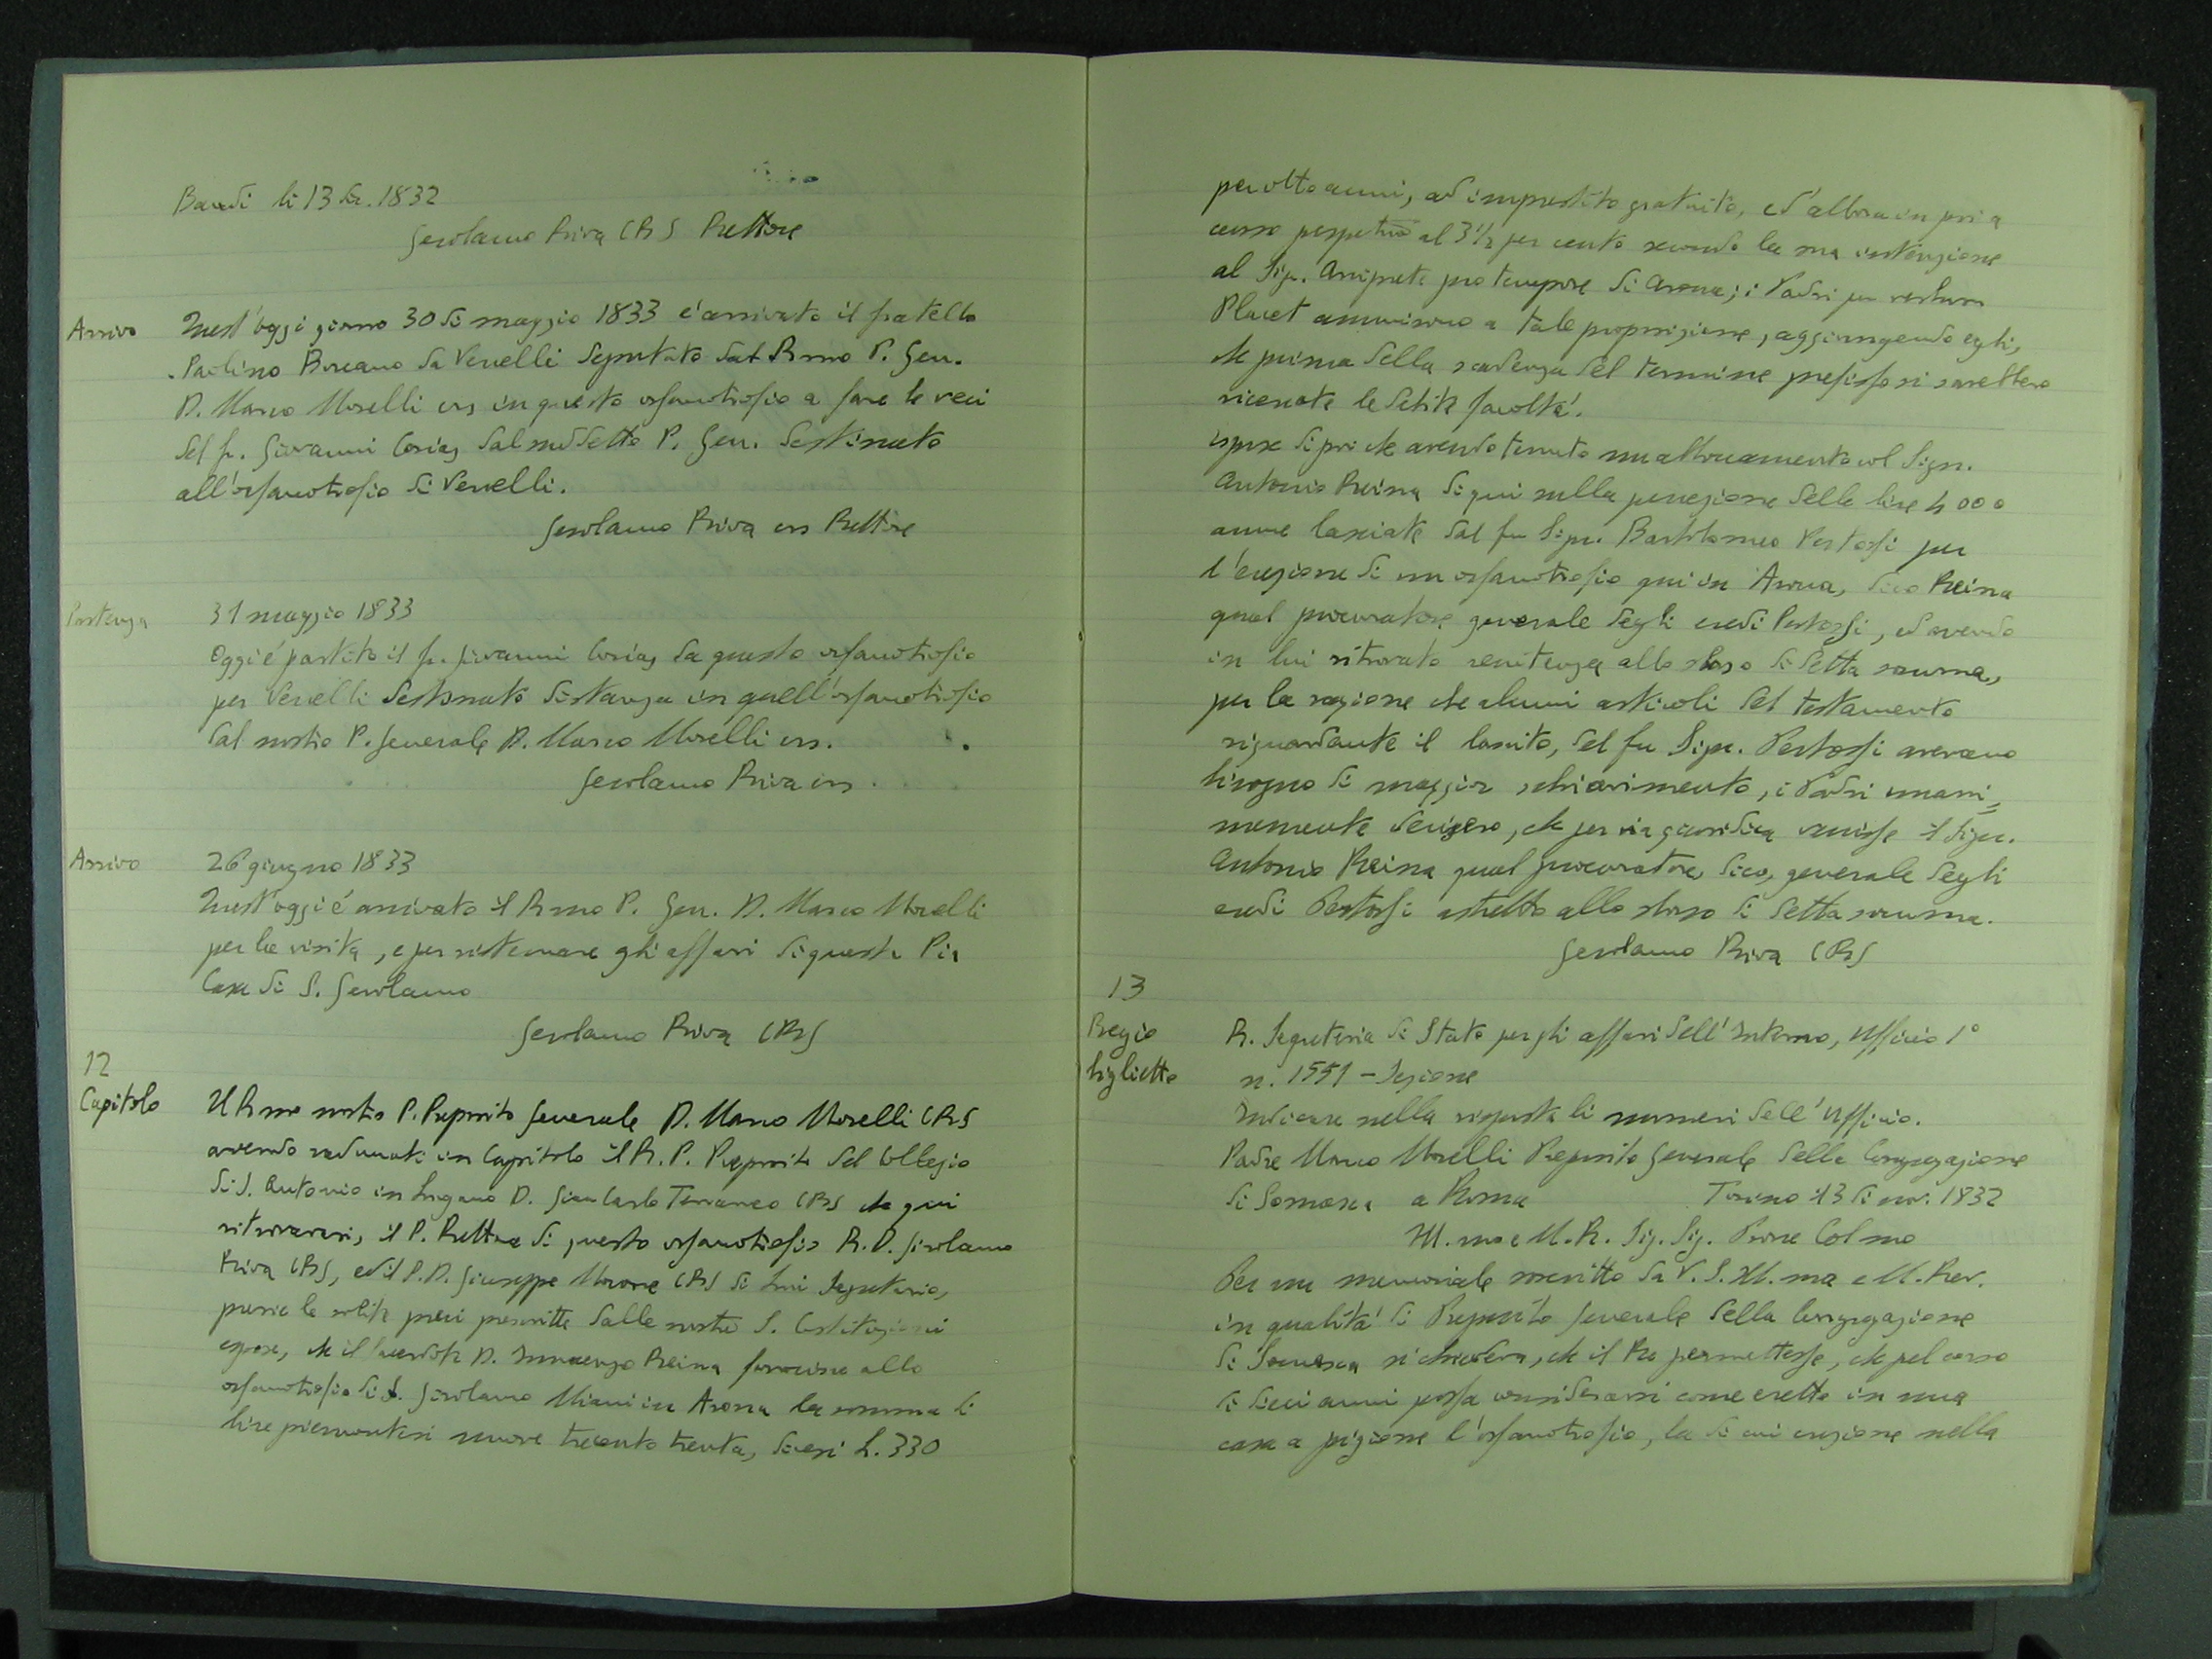 Baudi li 13 Dic. 1832
Gerolamo Riva CRS Rettore
Arrivo
Quest'oggi giorno 30 di maggio 1833 è arrivato il fratello
Paolino Boreano da Vercelli deputato dal Rmo P. Gen.
D. Marco Morelli crs in questo orfanotrofio a fare le veci
del fr. Giovanni Corias dal suddetto P. Gen. destinato
all'orfanotrofio di Vercelli.
Gerolamo Riva crs Rettore
Partenza
31 maggio 1833
Oggi è partito il fr. Giovanni Corias da questo orfanotrofio
per Vercelli destinato di stanza in quell'orfanotrofio
dal nostro P. Generale D. Marco Morelli crs.
Gerolamo Riva crs.
Arrivo
26 giugno 1833
Quest'oggi è arrivato il Rmo P. Gen. D. Marco Morelli
per la visita, e per sistemare gli affari di questa Pia
Casa di S. Gerolamo
Gerolamo Riva CRS
12
Capitolo
Il Rmo nostro P. Preposito Generale D. Marco Morelli CRS
avendo radunati in Capitolo il R. P. Preposito del Collegio
di S. Antonio in Lugano D. Gian Carlo Terraneo CRS che qui
ritrovavasi, il P. Rettore di questo orfanotrofio R. D. Girolamo
Riva CRS, ed il P. D. Giuseppe Morone CRS di Lui Segretario,
previe le solite preci prescritte dalle nostre S. Costituzioni
espose, che il Sacerdote D. Innocenzo Reina fornisce allo
orfanotrofio di S. Girolamo Miani in Arona la somma di
lire piemontesi nuove trecento trenta, dicesi L. 330
per otto anni, ad imprestito gratuito, ed allora in poi a
censo perpetuo al 3 1/2 per cento secondo la sua intenzione
al Sig. Arciprete pro tempore di Arona; i Padri per
Placet annuirono a tale proposizione, aggiungendo egli,
che prima della scadenza del termine prefisso si sarebbero
ricercate le debite facoltà.
Espose di poi che avendo tenuto un abboccamento col Sign.
Antonio Reina di qui sulla percezione delle lire 4000
annue lasciate dal fu Sign. Bartolomeo Pertossi per
l'erezione di un orfanotrofio qui in Arona, dico Reina
qual procuratore generale degli eredi Pertossi, ed avendo
in lui ritrovato renitenza allo sborso di detta somma,
per la ragione che alcuni articoli del testamento
riguardante il lascito, del fu Sign. Pertossi avevano
bisogno di maggior schiarimento, i Padri unani=
mamente decisero, che per via giuridica venisse il Sign.
Antonio Reina qual procuratore, dico, generale degli
eredi Pertossi astretto allo sborso di detta somma.
Gerolamo Riva CRS
13
Regio
biglietto
R. Segreteria di Stato per gli affari dell'Interno, Ufficio 1°
n. 1551 - Sezione
Indicare nella risposta li numeri dell'Ufficio.
Padre Marco Morelli Preposito Generale della Congregazione
di Somasca a Roma Torino il 3 di nov. 1832
Ill.mo e M. R. Sig. Sig. Prone Col mo
Per un memoriale sporitto da V. S. Ill.ma e M. Rev.
in qualità di Preposito Generale della Congregazione
di Somasca si chiedeva, che il Re permettesse, che pel corso
di dieci anni possa considerarsi come eretto in una
casa a pigione l'orfanotrofio, la di cui erezione nella